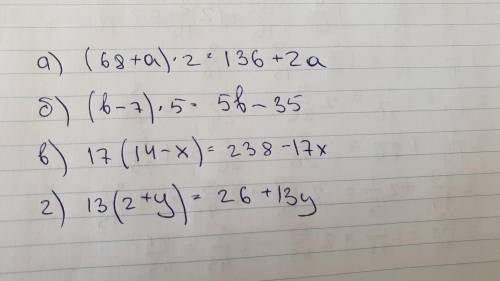 а) (68+a)·2=136+2a
б) (b-7)·5=5b-35
в) 17(14-x)=238-17x
г) 13(2+y)=26+13y